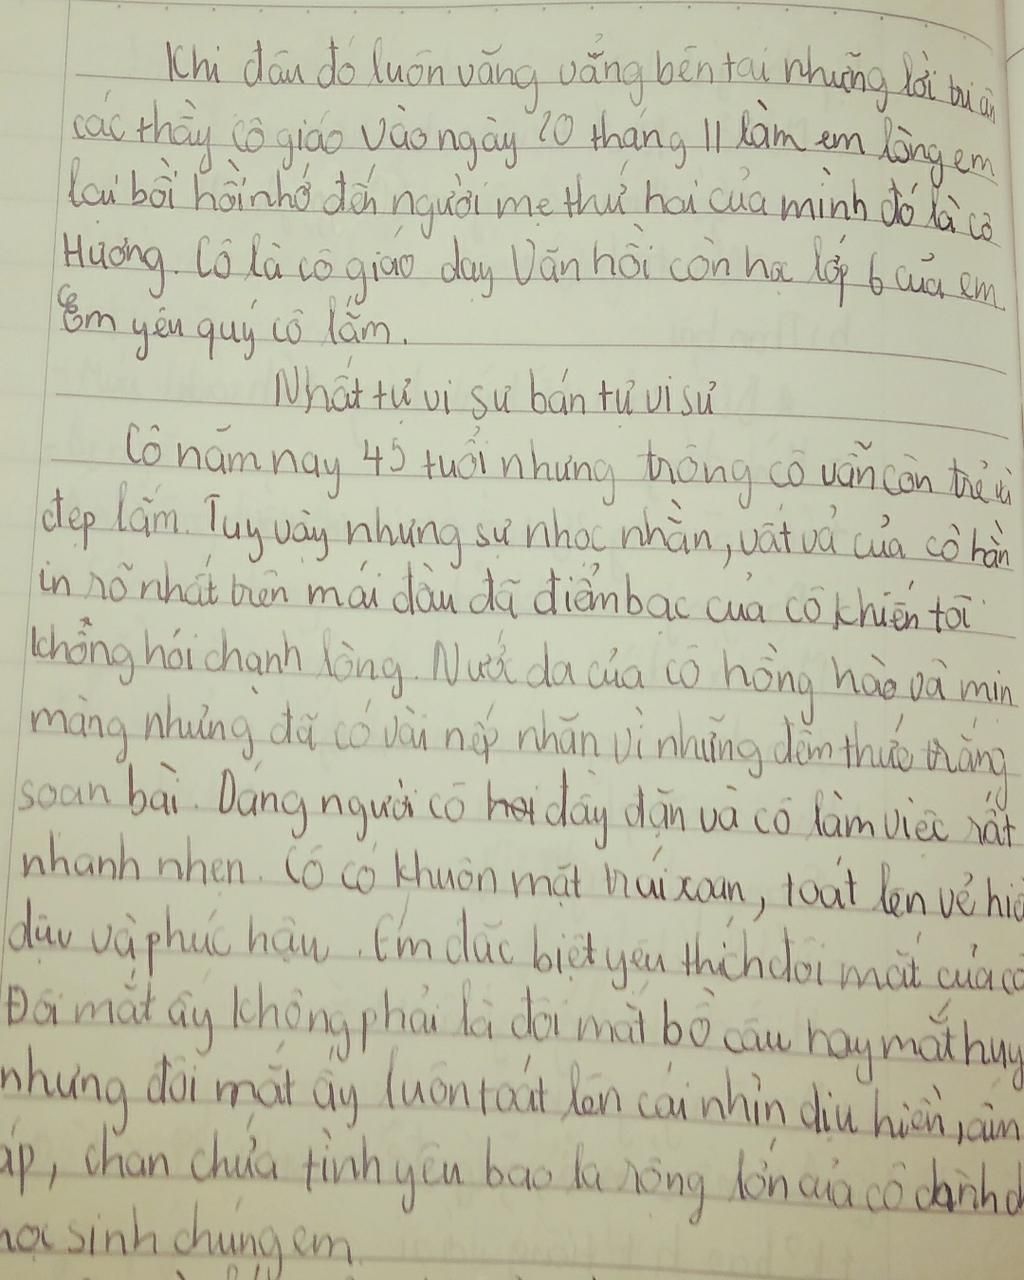 Khi đâu đó luôn văng vẳng bên tai những lời tri ân
các thầy cô giáo vào ngày 20 tháng 11 làm em lòng em
lại bồi hồi nhớ đến người mẹ thứ hai của mình đó là cô
Hương. Cô là cô giáo dạy Văn hồi còn học lớp 6 của em.
Em yêu quý cô lắm.
Nhất tự vi sư bán tự vi sư
Cô năm nay 45 tuổi nhưng trông cô vẫn còn trẻ và
đẹp lắm. Tuy vậy nhưng sự nhọc nhằn, vất vả của cô hằn
in rõ nhất trên mái đầu đã điểm bạc của cô khiến tôi
không khỏi chạnh lòng. Nước da của cô hồng hào và mịn
màng nhưng đã có vài nếp nhăn vì những đêm thức trắng
soạn bài. Dáng người cô hơi đầy đặn và cô làm việc rất
nhanh nhẹn. Cô có khuôn mặt trái xoan, toát lên vẻ hiề
dịu và phúc hậu. Em đặc biệt yêu thích đôi mắt của cô
Đôi mắt ấy không phải là đôi mắt bồ câu hay mắt huy
nhưng đôi mắt ấy luôn toát lên cái nhìn dịu hiền, ấm
áp, chan chứa tình yêu bao la rộng lớn của cô dành
học sinh chúng em